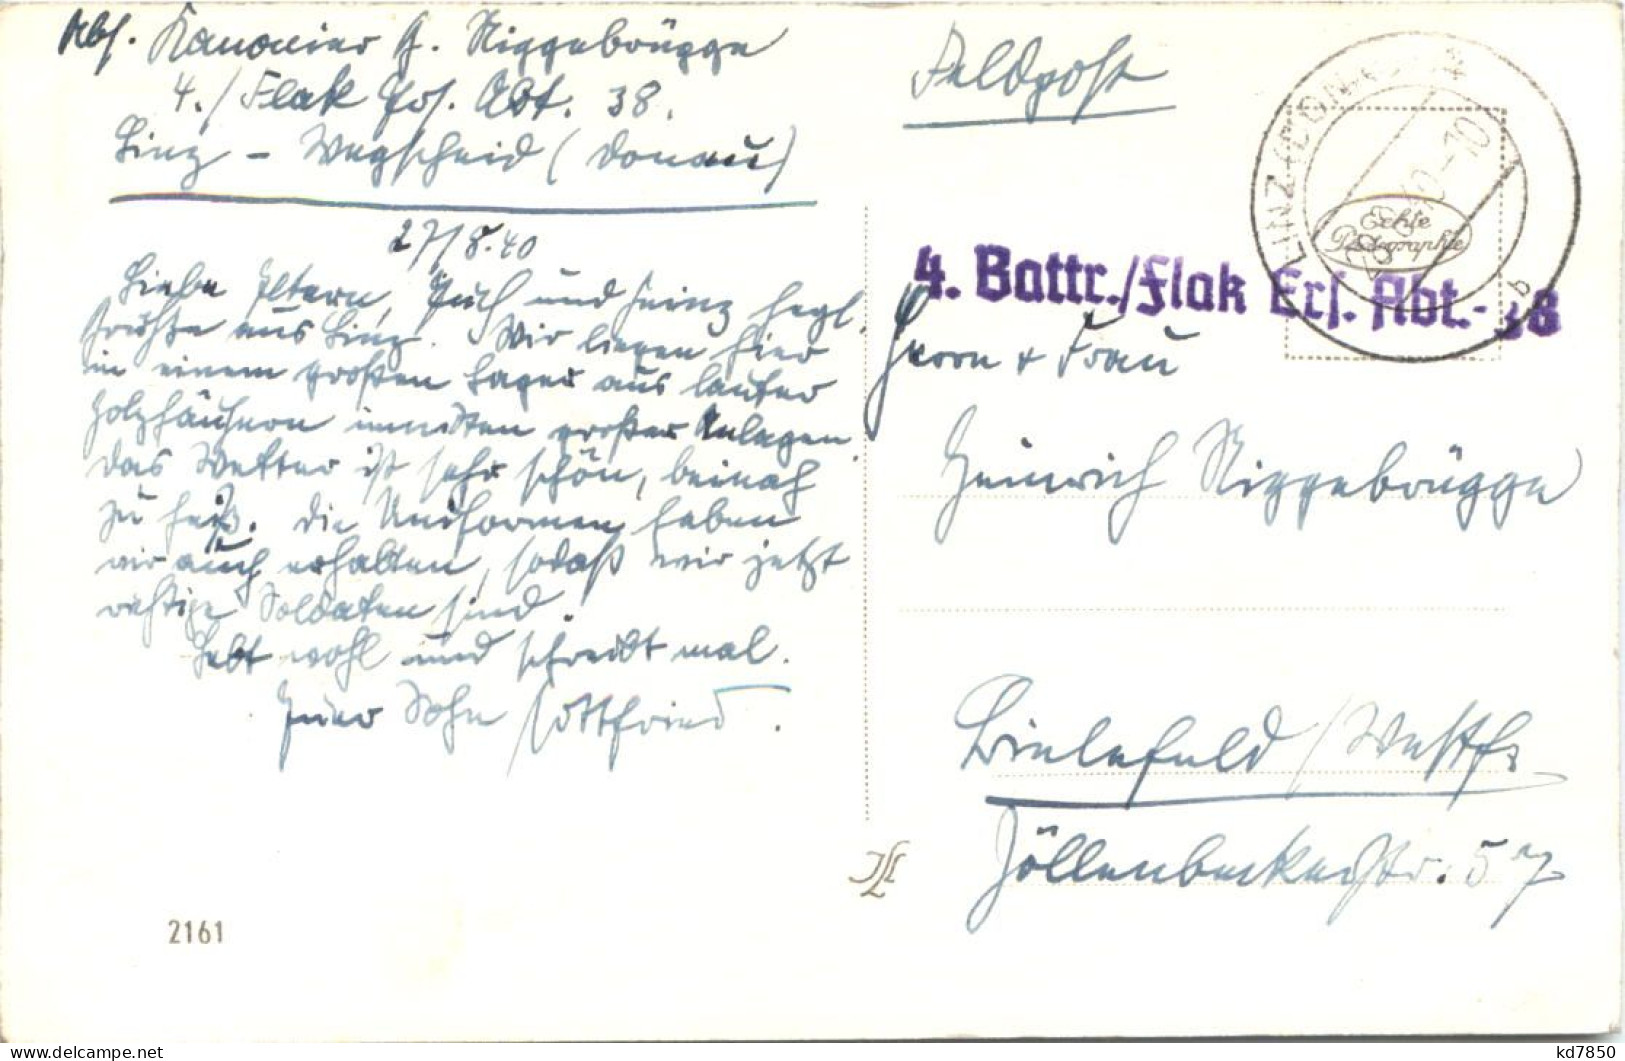 Abs. Kanonier G. Niggebrügge
4./Flak Ers. Abt. 38.
Linz - Wegscheid (Donau)
27/8.40
Liebe Eltern, Euch und Heinz hzgl.
Grüße aus Linz. Wir liegen hier
in einem großen Lager aus lauter
Holzhäusern inmitten großer Anlagen.
Das Wetter ist sehr schön, beinah
zu heiß. Die Uniformen haben
wir auch erhalten, sodaß wir jetzt
richtige Soldaten sind.
Lebt wohl und schreibt mal.
Euer Sohn Gottfried.
2161
Feldpost
LINZ (DONAU)
-10
b
Echte
Photographie
4. Battr./Flak Ers. Abt.- 38
Herrn + Frau
Heinrich Niggebrügge
Bielefeld /Westf.
Jöllenbeckerstr. 57
kd7850